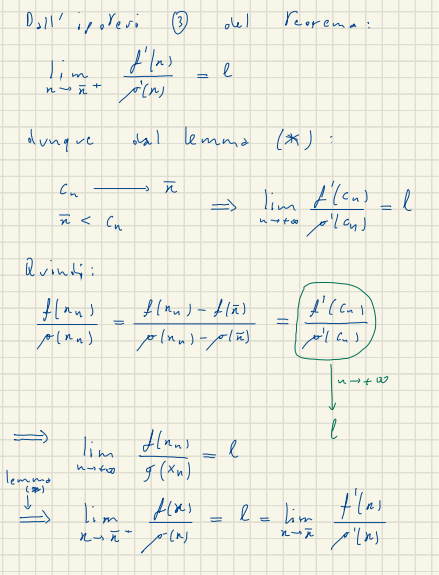 Dall'ipotesi ③ del teorema:
lim x→x̄⁺ f'(x)/g'(x) = l
dunque dal lemma (*):
cₙ ⟶ x̄
x̄ < cₙ ⟹ lim n→+∞ f'(cₙ)/g'(cₙ) = l
Quindi:
f(xₙ)/g(xₙ) = f(xₙ) - f(x̄)/g(xₙ) - g(x̄) = f'(cₙ)/g'(cₙ)
n→+∞
l
⟹ lim n→+∞ f(xₙ)/g(xₙ) = l
lemma (*)
⟹ lim x→x̄⁺ f(x)/g(x) = l = lim x→x̄ f'(x)/g'(x)